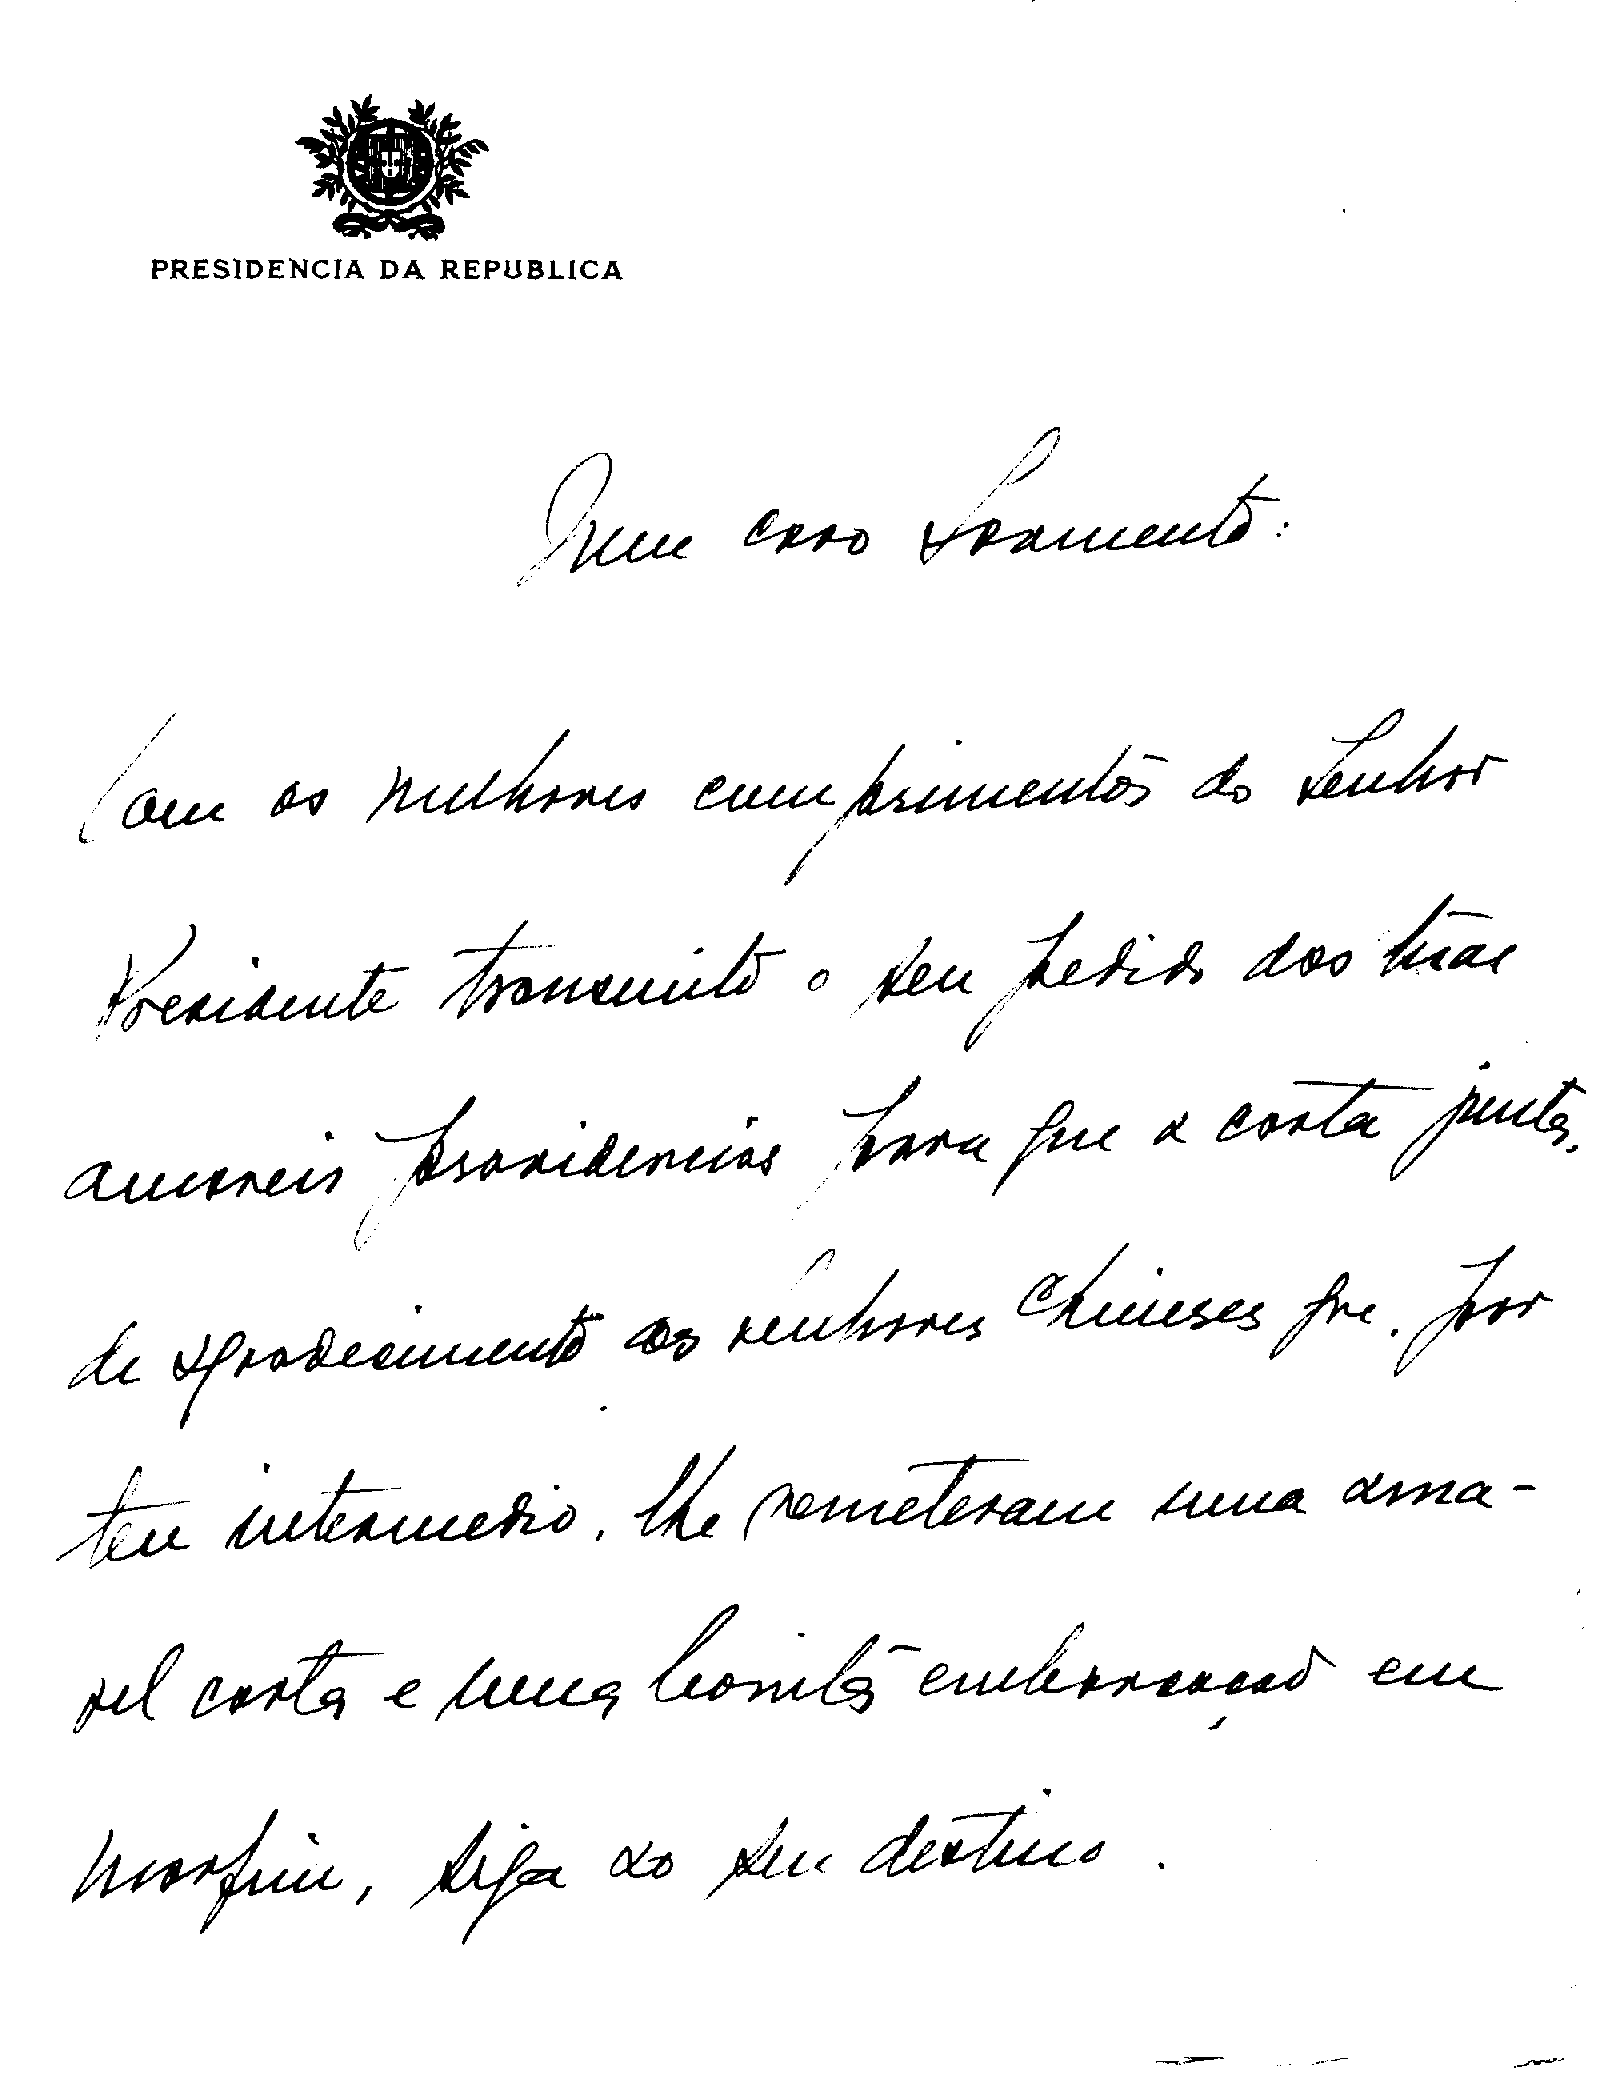 PRESIDENCIA DA REPUBLICA
Meu caro Sarmento:
Com os melhores cumprimentos do Senhor
Presidente transmito o seu pedido das tuas
amaveis providencias para que a carta junta,
de agradecimento aos senhores Chineses que, por
teu intermedio, lhe remeteram uma ama-
vel carta e uma bonita embarcação em
marfim, siga ao seu destino.